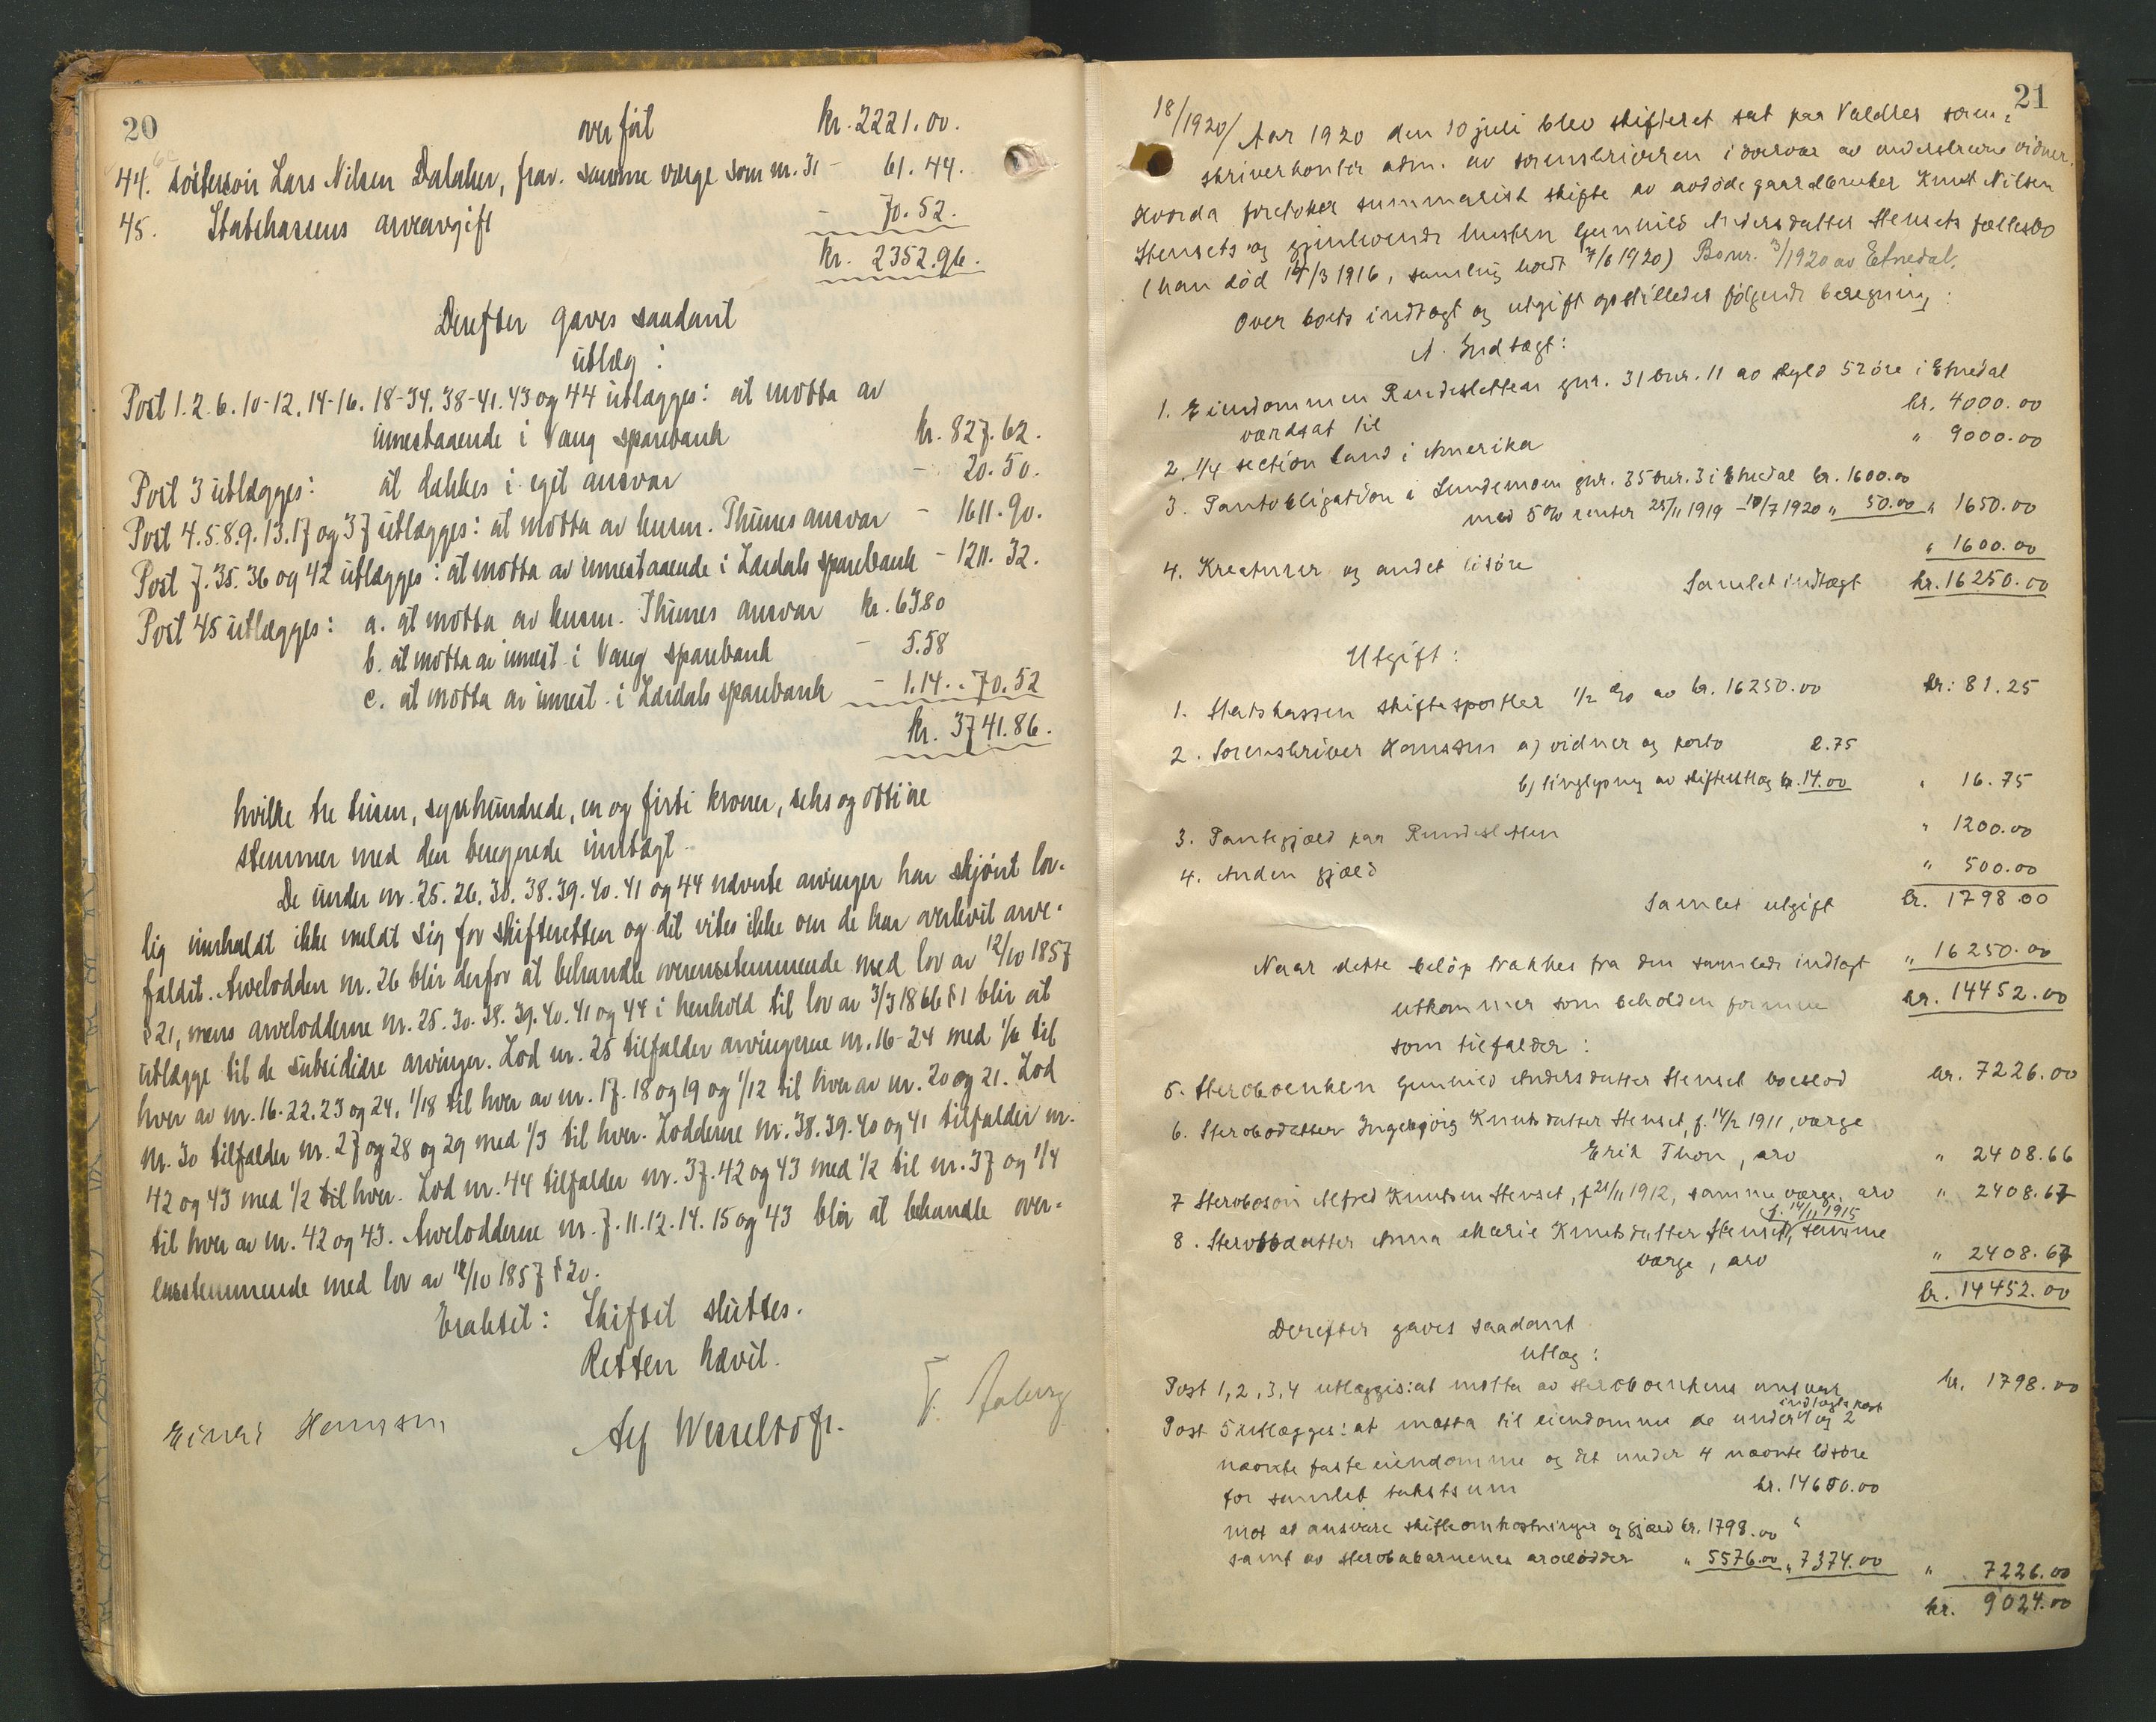 20
overført kr. 2221.00.
44. Søstersøn Lars Nilsen Dalaker, frav. samme værge som nr. 31 - 61.44.
45. Statskassens arveavgift - 70.52.
kr. 2352.96.
Derefter gaves saadant
utlæg:
Post 1. 2. 6. 10-12. 14-16. 18-34. 38-41. 43 og 44 utlægges: at motta av
innestaaende i Vang sparebank kr. 827.62.
Post 3 utlægges: at dækkes i eget ansvar - 20.50.
Post 4. 5. 8. 9. 13. 17 og 37 utlægges: at motta av husm. Thunes ansvar - 1611.90.
Post 7. 35. 36 og 42 utlægges: at motta av innestaaende i Lærdals sparebank - 1211.32.
Post 45 utlægges: a. at motta av husm. Thunes ansvar kr. 63.80
b. at motta av innest. i Vang sparebank - 5.58
c. at motta av innest. i Lærdals sparebank - 1.14 - 70.52
kr. 3741.86.
hvilke tre tusen, syvhundrede, en og firti kroner, seks og otti øre
stemmer med den beregnede inntægt.
De under nr. 25. 26. 30. 38. 39. 40. 41 og 44 nævnte arvinger har skjønt lov-
lig innkaldt ikke meldt sig for skifteretten og det vites ikke om de har overlevet arve-
faldet. Arvelodden nr. 26 blir derfor at behandle overensstemmende med lov av 12/10 1857
§ 21, mens arvelodderne nr. 25. 30. 38. 39. 40. 41 og 44 i henhold til lov av 3/3 1866 § 1 blir at
utlægge til de subsidiære arvinger. Lod nr. 25 tilfalder arvingerne nr. 16-24 med 1/6 til
hver av nr. 16. 22. 23 og 24, 1/18 til hver av nr. 17. 18 og 19 og 1/12 til hver av nr. 20 og 21. Lod
nr. 30 tilfalder nr. 27 og 28 og 29 med 1/3 til hver. Lodderne nr. 38. 39. 40 og 41 tilfalder nr.
42 og 43 med 1/2 til hver. Lod nr. 44 tilfalder nr. 37. 42 og 43 med 1/2 til nr. 37 og 1/4
til hver av nr. 42 og 43. Arvelodderne nr. 7. 11. 12. 14. 15 og 43 blir at behandle over-
ensstemmende med lov av 12/10 1857 § 20.
Eraktet: Skiftet sluttes.
Retten hævet.
Einar Hansson Alf Wesseltoft.
21
18/1920/ Aar 1920 den 10 juli blev skifteret sat paa Valdres soren-
skriverkontor adm. av sorenskriveren i overvær av underskrevne vidner.
Hvorda foretokes summarisk skifte av avdøde gaardbruker Knut Nilsen
Stensets og gjenlevende hustru Gunhild Andersdatter Stensets fællesbo
(han død 15/3 1916, samling hædt 7/6 1920) Bonr. 3/1920 av Etnedal.
Over boets indtægt og utgift opstilledes følgende beregning:
A. Indtægt:
1. Eiendommen Rundesletten gnr. 31 bnr. 11 av skyld 52 øre i Etnedal
værdsat til kr. 4000.00
2. 1/4 section land i Amerika " 9000.00
3. Pantobligation i Lundemoen gnr. 35 bnr. 3 i Etnedal kr. 1600.00
med 5 % renter 25/11 1919 - 10/7 1920 " 50.00 " 1650.00
4. Kreaturer og andet løsøre " 1600.00
Samlet indtægt kr. 16250.00
Utgift:
1. Statskassen skiftesportler 1/2 % av kr. 16250.00 kr. 81.25
2. Sorenskriver Hansson a) vidner og porto 2.75
b) tinglysning av skifteutlæg kr. 14.00 " 16.75
3. Pantegjæld paa Rundesletten " 1200.00
4. Anden gjæld " 500.00
Samlet utgift kr. 1798.00
Naar dette beløp trækkes fra den samlede indtægt " 16250.00
utkommer som beholden formue kr. 14452.00
som tilfalder:
5. Sterboenken Gunhild Andersdatter Stenset boeslod kr. 7226.00
6. Sterbodatter Ingebjørg Knutsdatter Stenset, f. 14/2 1911, værge
Erik Thon, arv " 2408.66
7 Sterbosøn Alfred Knutsen Stenset, f 21/11 1912, samme værge, arv " 2408.67
f. 14/11 1915
8. Sterbodatter Anna Marie Knutsdatter Stenset, samme
værge, arv " 2408.67
kr. 14452.00
Derefter gaves saadant
utlæg:
Post 1, 2, 3, 4 utlægges: at motta av sterboenkens ansvar kr. 1798.00
indtægts post
Post 5 utlægges: at motta til eiendomme de under 1 og 2
nævnte faste eiendomme og det under 4 nævnte løsøre
for samlet takstsum kr. 14600.00
mot at ansvare skifteomkostninger og gjæld kr. 1798.00 "
samt av sterbobarnenes arvelodder " 5576.00 " 7374.00 " 7226.00
kr. 9024.00